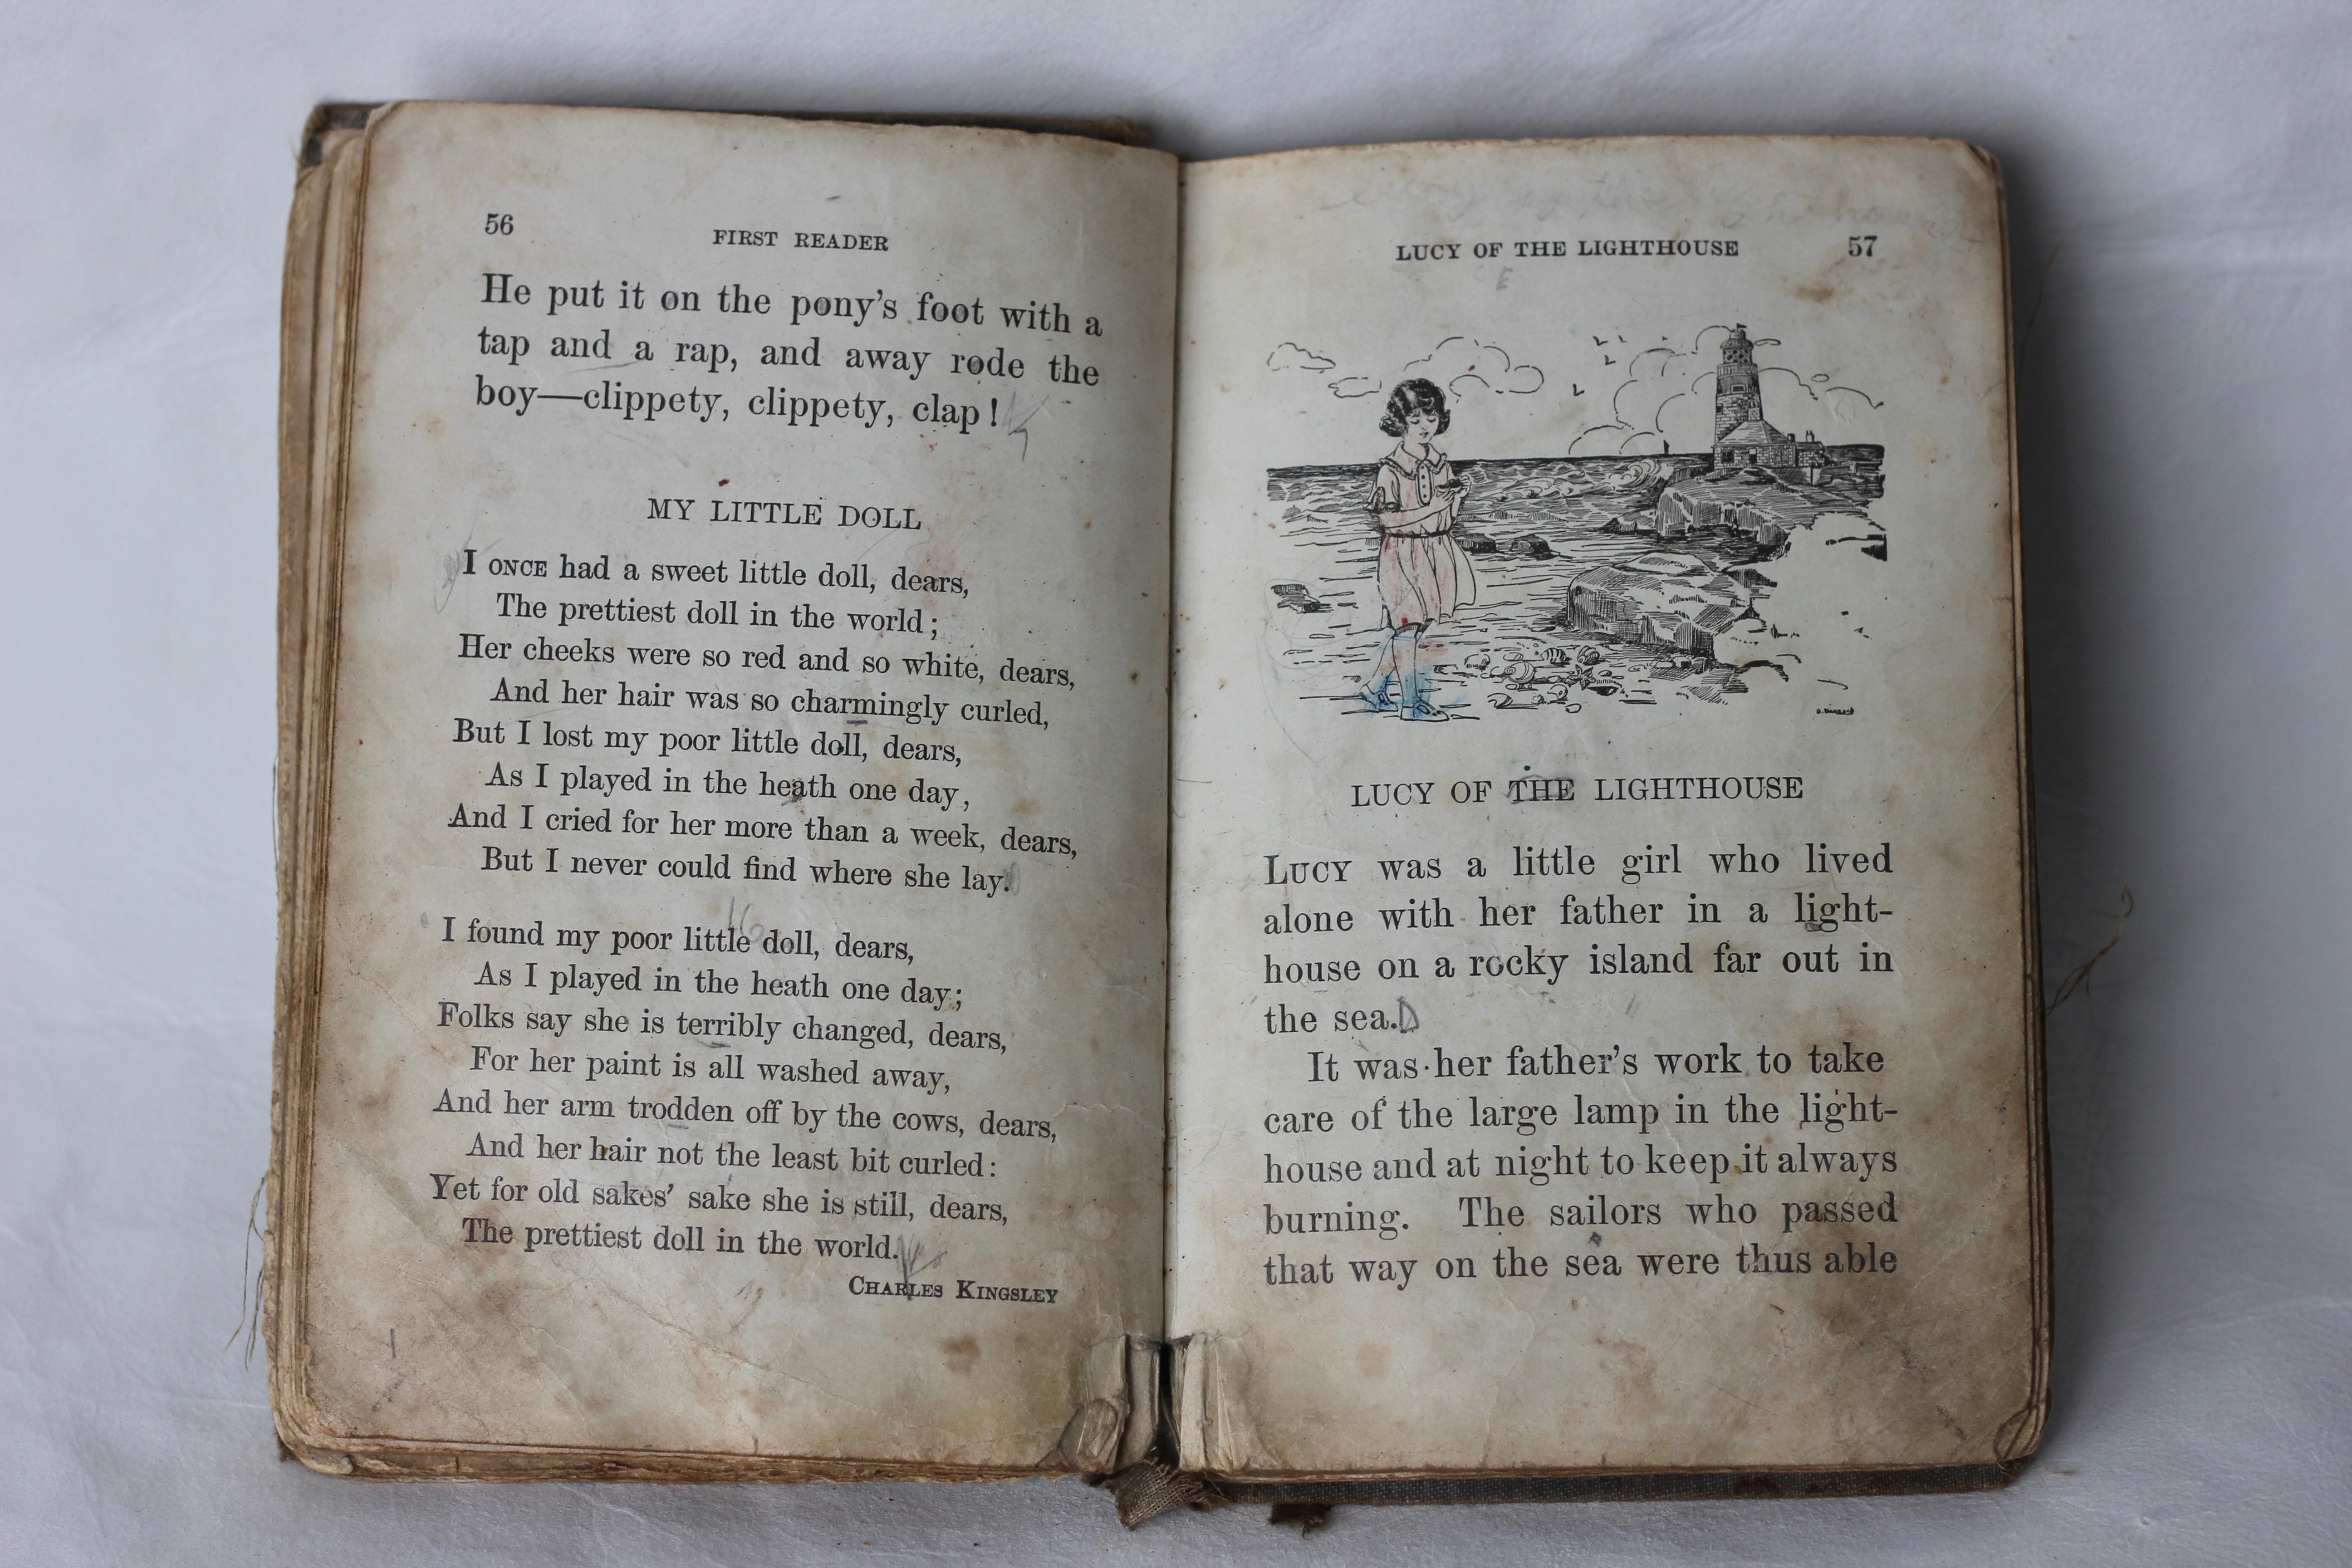 56
FIRST READER
He put it on the pony's foot with a
tap and a rap, and away rode the
boy—clippety, clippety, clap!
MY LITTLE DOLL
I ONCE had a sweet little doll, dears,
The prettiest doll in the world;
Her cheeks were so red and so white, dears,
And her hair was so charmingly curled,
But I lost my poor little doll, dears,
As I played in the heath one day,
And I cried for her more than a week, dears,
But I never could find where she lay.
I found my poor little doll, dears,
As I played in the heath one day;
Folks say she is terribly changed, dears,
For her paint is all washed away,
And her arm trodden off by the cows, dears,
And her hair not the least bit curled:
Yet for old sakes' sake she is still, dears,
The prettiest doll in the world.
CHARLES KINGSLEY
LUCY OF THE LIGHTHOUSE
57
LUCY OF THE LIGHTHOUSE
LUCY was a little girl who lived
alone with her father in a light-
house on a rocky island far out in
the sea.
It was her father's work to take
care of the large lamp in the light-
house and at night to keep it always
burning. The sailors who passed
that way on the sea were thus able